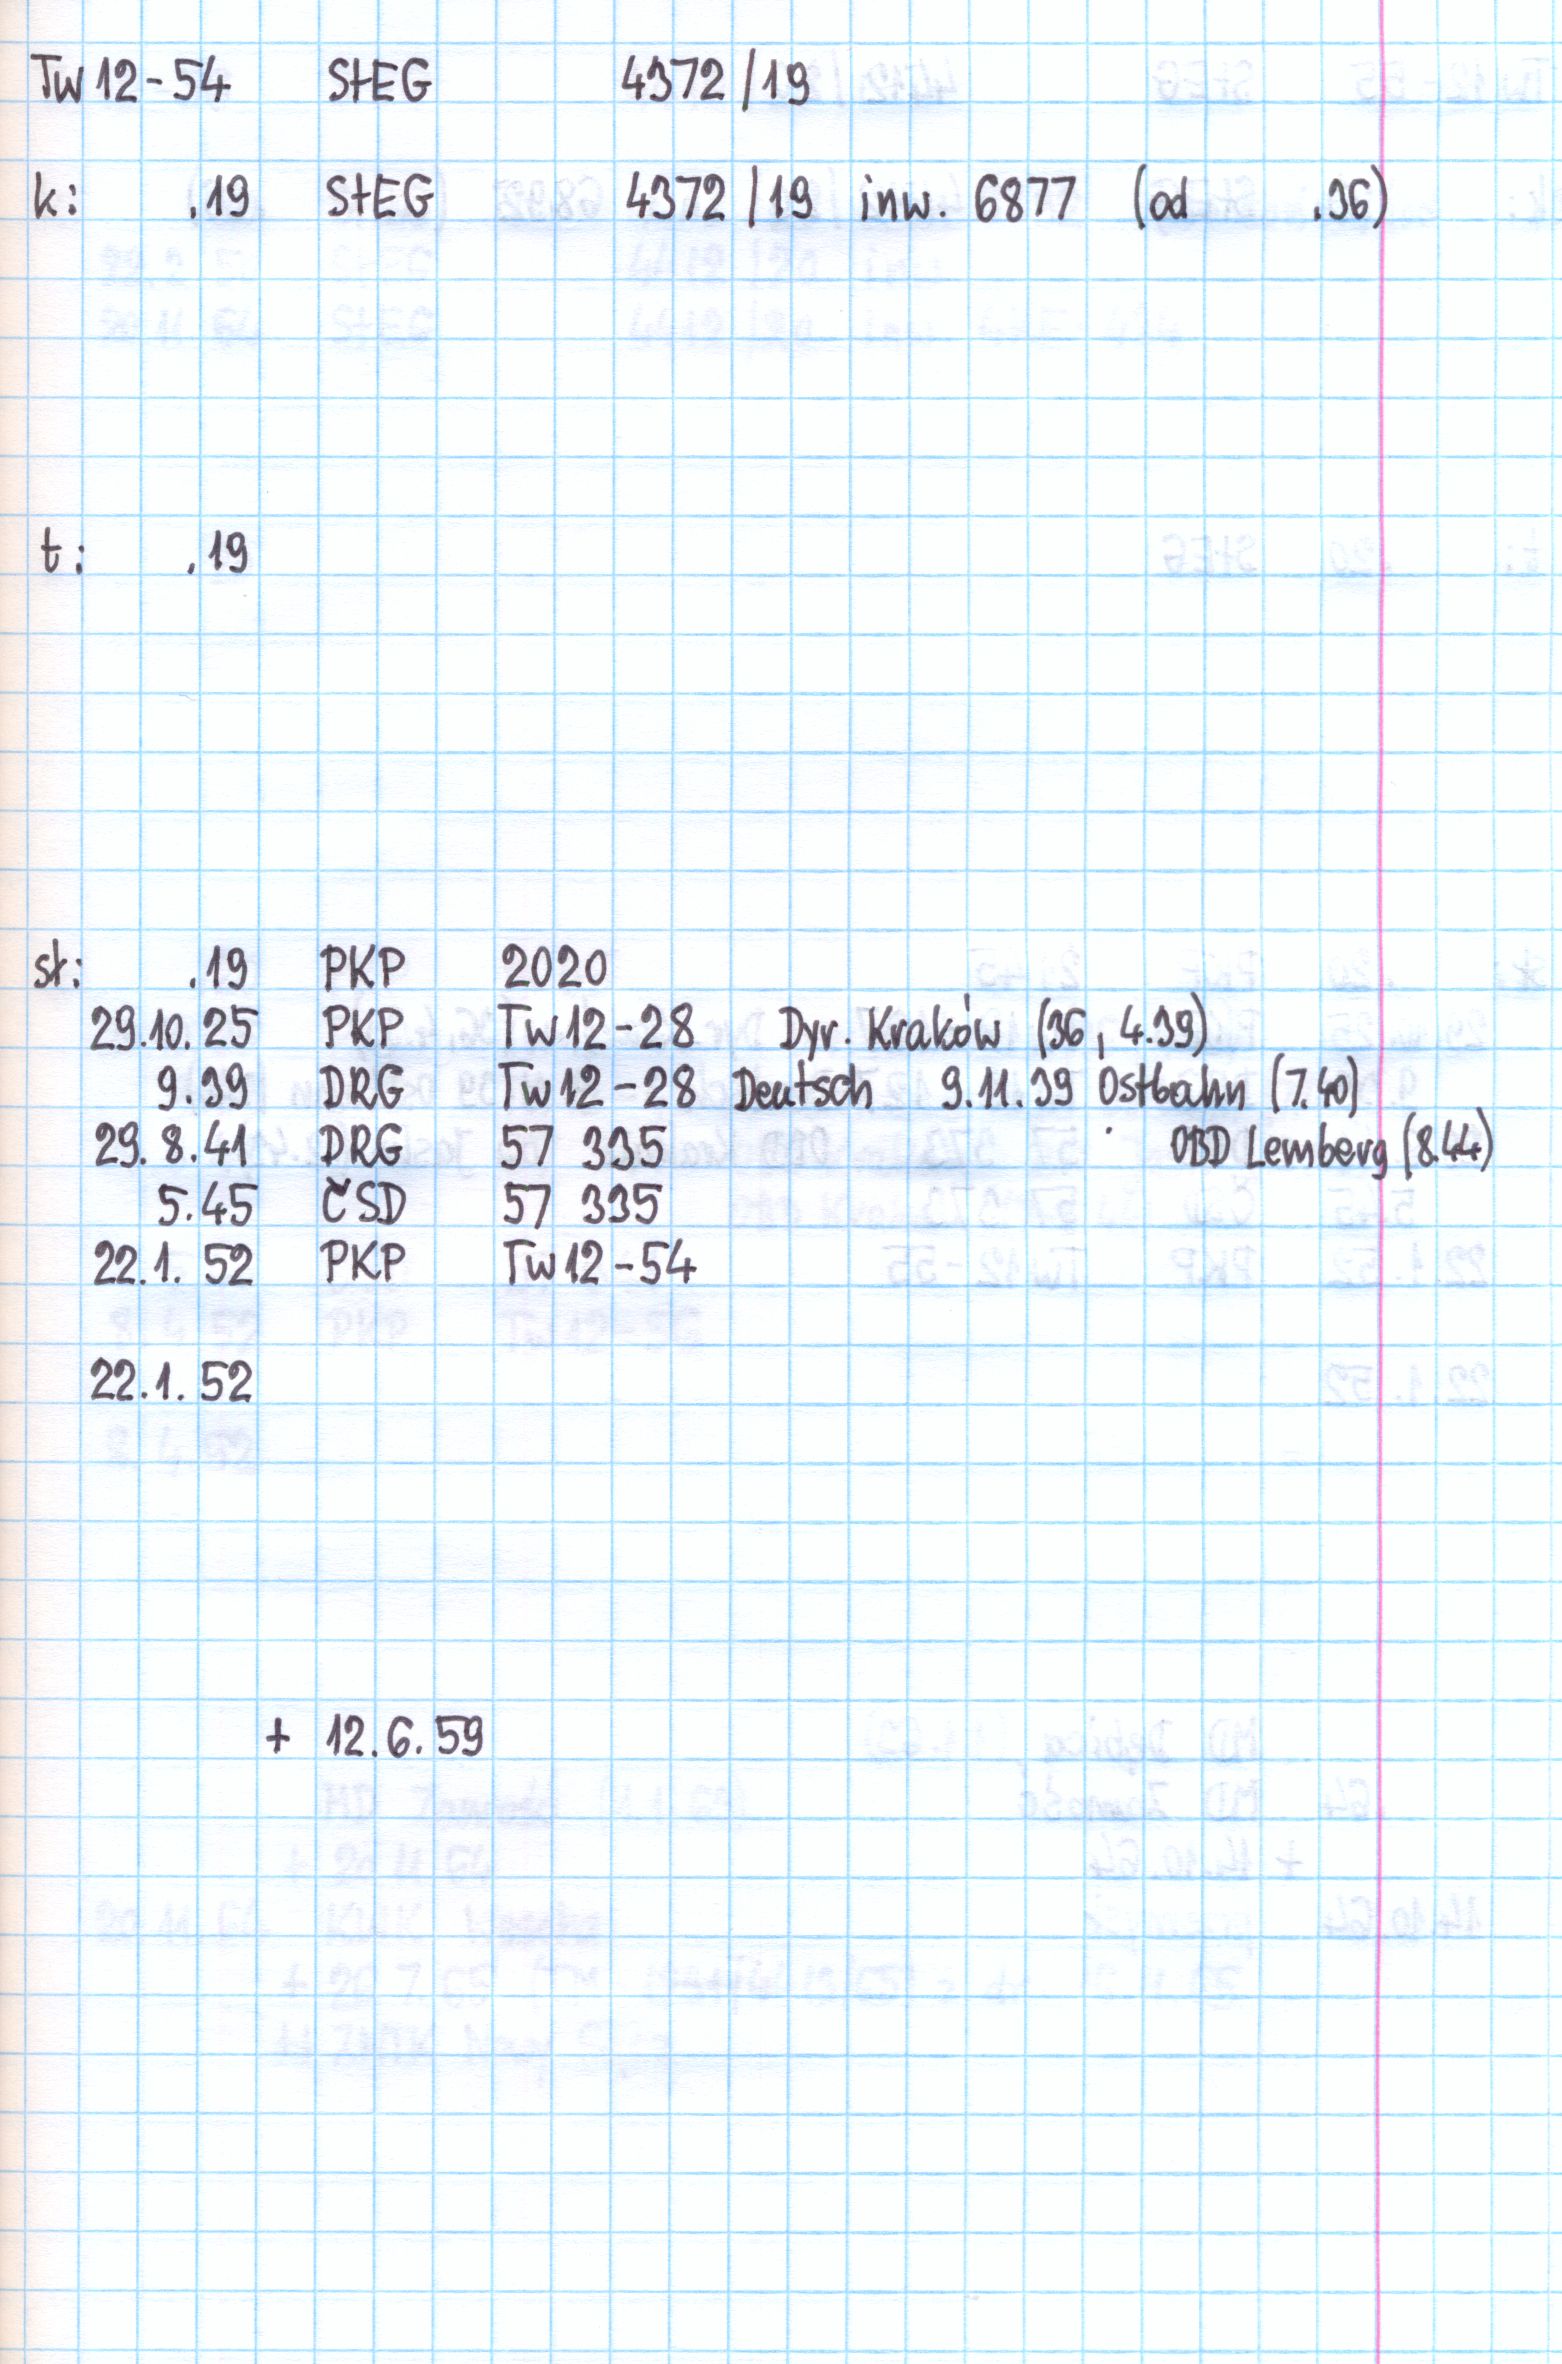 Tw12-54 StEG 4372/19
k: .19 StEG 4372/19 inw. 6877 (od .36)
t: .19
st: .19 PKP 2020
29.10.25 PKP Tw12-28 Dyr. Kraków (36, 4.39)
9.39 DRG Tw12-28 Deutsch 9.11.39 Ostbahn (7.40)
29.8.41 DRG 57 335 OBD Lemberg (8.44)
5.45 ČSD 57 335
22.1.52 PKP Tw12-54
22.1.52
+ 12.6.59